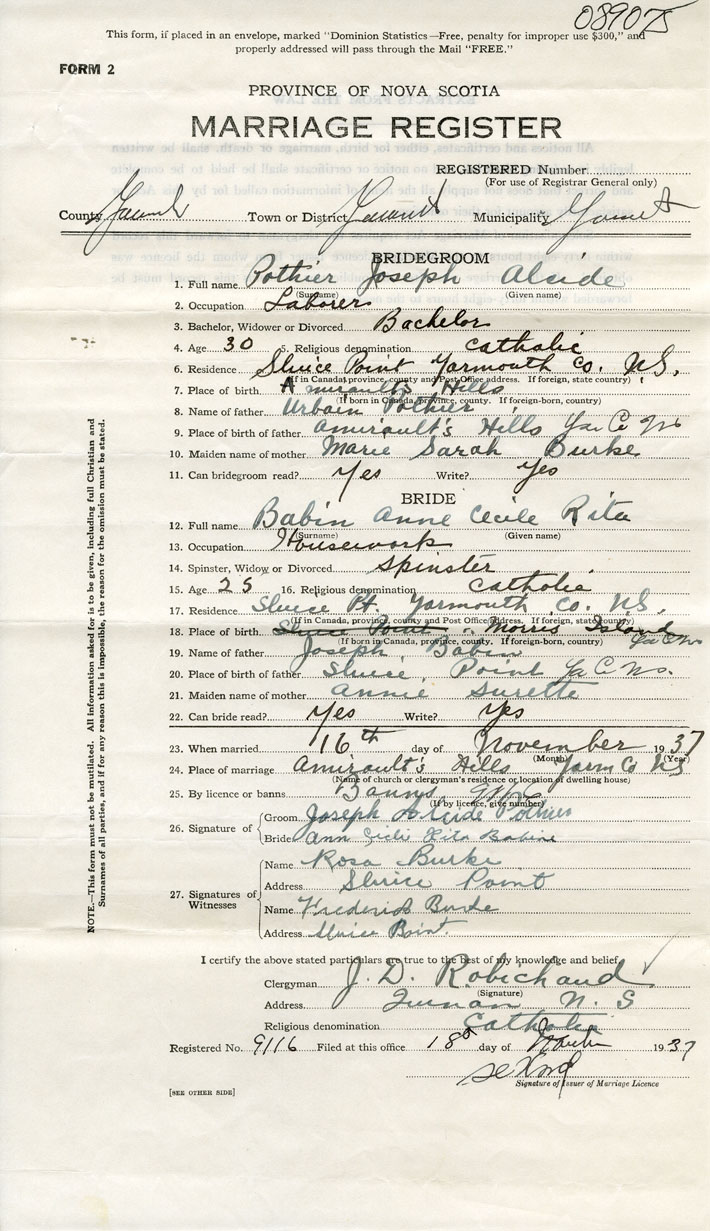 089075
This form, if placed in an envelope, marked "Dominion Statistics—Free, penalty for improper use $300," and
properly addressed will pass through the Mail "FREE."
FORM 2
PROVINCE OF NOVA SCOTIA
MARRIAGE REGISTER
REGISTERED Number
(For use of Registrar General only)
County Town or District Municipality
BRIDEGROOM
1. Full name Pothier Joseph Alcide
(Surname) (Given name)
2. Occupation Laborer
3. Bachelor, Widower or Divorced Bachelor
4. Age 30 5. Religious denomination Catholic
6. Residence Sluice Point Yarmouth Co. N.S.
(If in Canada, province, county and Post Office address. If foreign, state country)
7. Place of birth Amirault's Hills
(If born in Canada, province, county. If foreign-born, country)
8. Name of father Urbain Pothier
9. Place of birth of father Amirault's Hills Ya Co Ns
10. Maiden name of mother Marie Sarah Burke
11. Can bridegroom read? Yes Write? Yes
BRIDE
12. Full name Babin Anne Cecile Rita
(Surname) (Given name)
13. Occupation Housework
14. Spinster, Widow or Divorced Spinster
15. Age 25 16. Religious denomination Catholic
17. Residence Sluice Pt. Yarmouth Co. N.S.
(If in Canada, province, county and Post Office address. If foreign, state country)
18. Place of birth Sluice Point Morris Island Ya Co Ns
(If born in Canada, province, county. If foreign-born, country)
19. Name of father Joseph Babin
20. Place of birth of father Sluice Point Ya Co Ns.
21. Maiden name of mother Annie Surette
22. Can bride read? Yes Write? Yes
23. When married 16th day of November 1937
(Month) (Year)
24. Place of marriage Amirault's Hills Yarm Co NS
(Name of church or clergyman's residence or location of dwelling house)
25. By licence or banns Banns
(If by licence, give number)
26. Signature of Groom Joseph Alcide Pothier
Bride Ann Cecile Rita Babine
27. Signatures of Witnesses Name Rosa Burke
Address Sluice Point
Name Frederick Burke
Address Sluice Point.
I certify the above stated particulars are true to the best of my knowledge and belief.
Clergyman J. D. Robichaud
(Signature)
Address Quinan N. S
Religious denomination Catholic
Registered No. 9116 Filed at this office 18 day of 1937
Signature of Issuer of Marriage Licence
[SEE OTHER SIDE]
NOTE.—This form must not be mutilated. All information asked for is to be given, including full Christian and
Surnames of all parties, and if for any reason this is impossible, the reason for the omission must be stated.